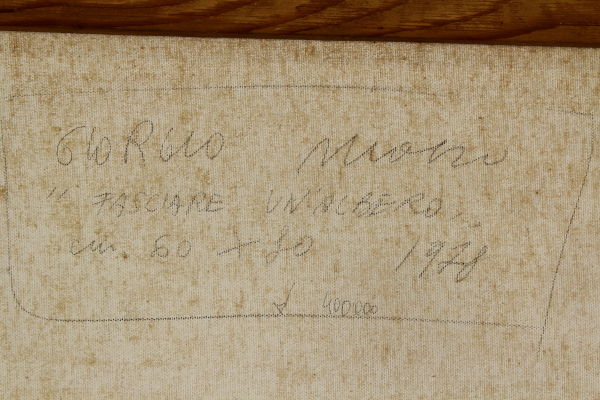 GIORGIO
" FASCIARE UN'ALBERO,
cm 60 x 80 1978
400000